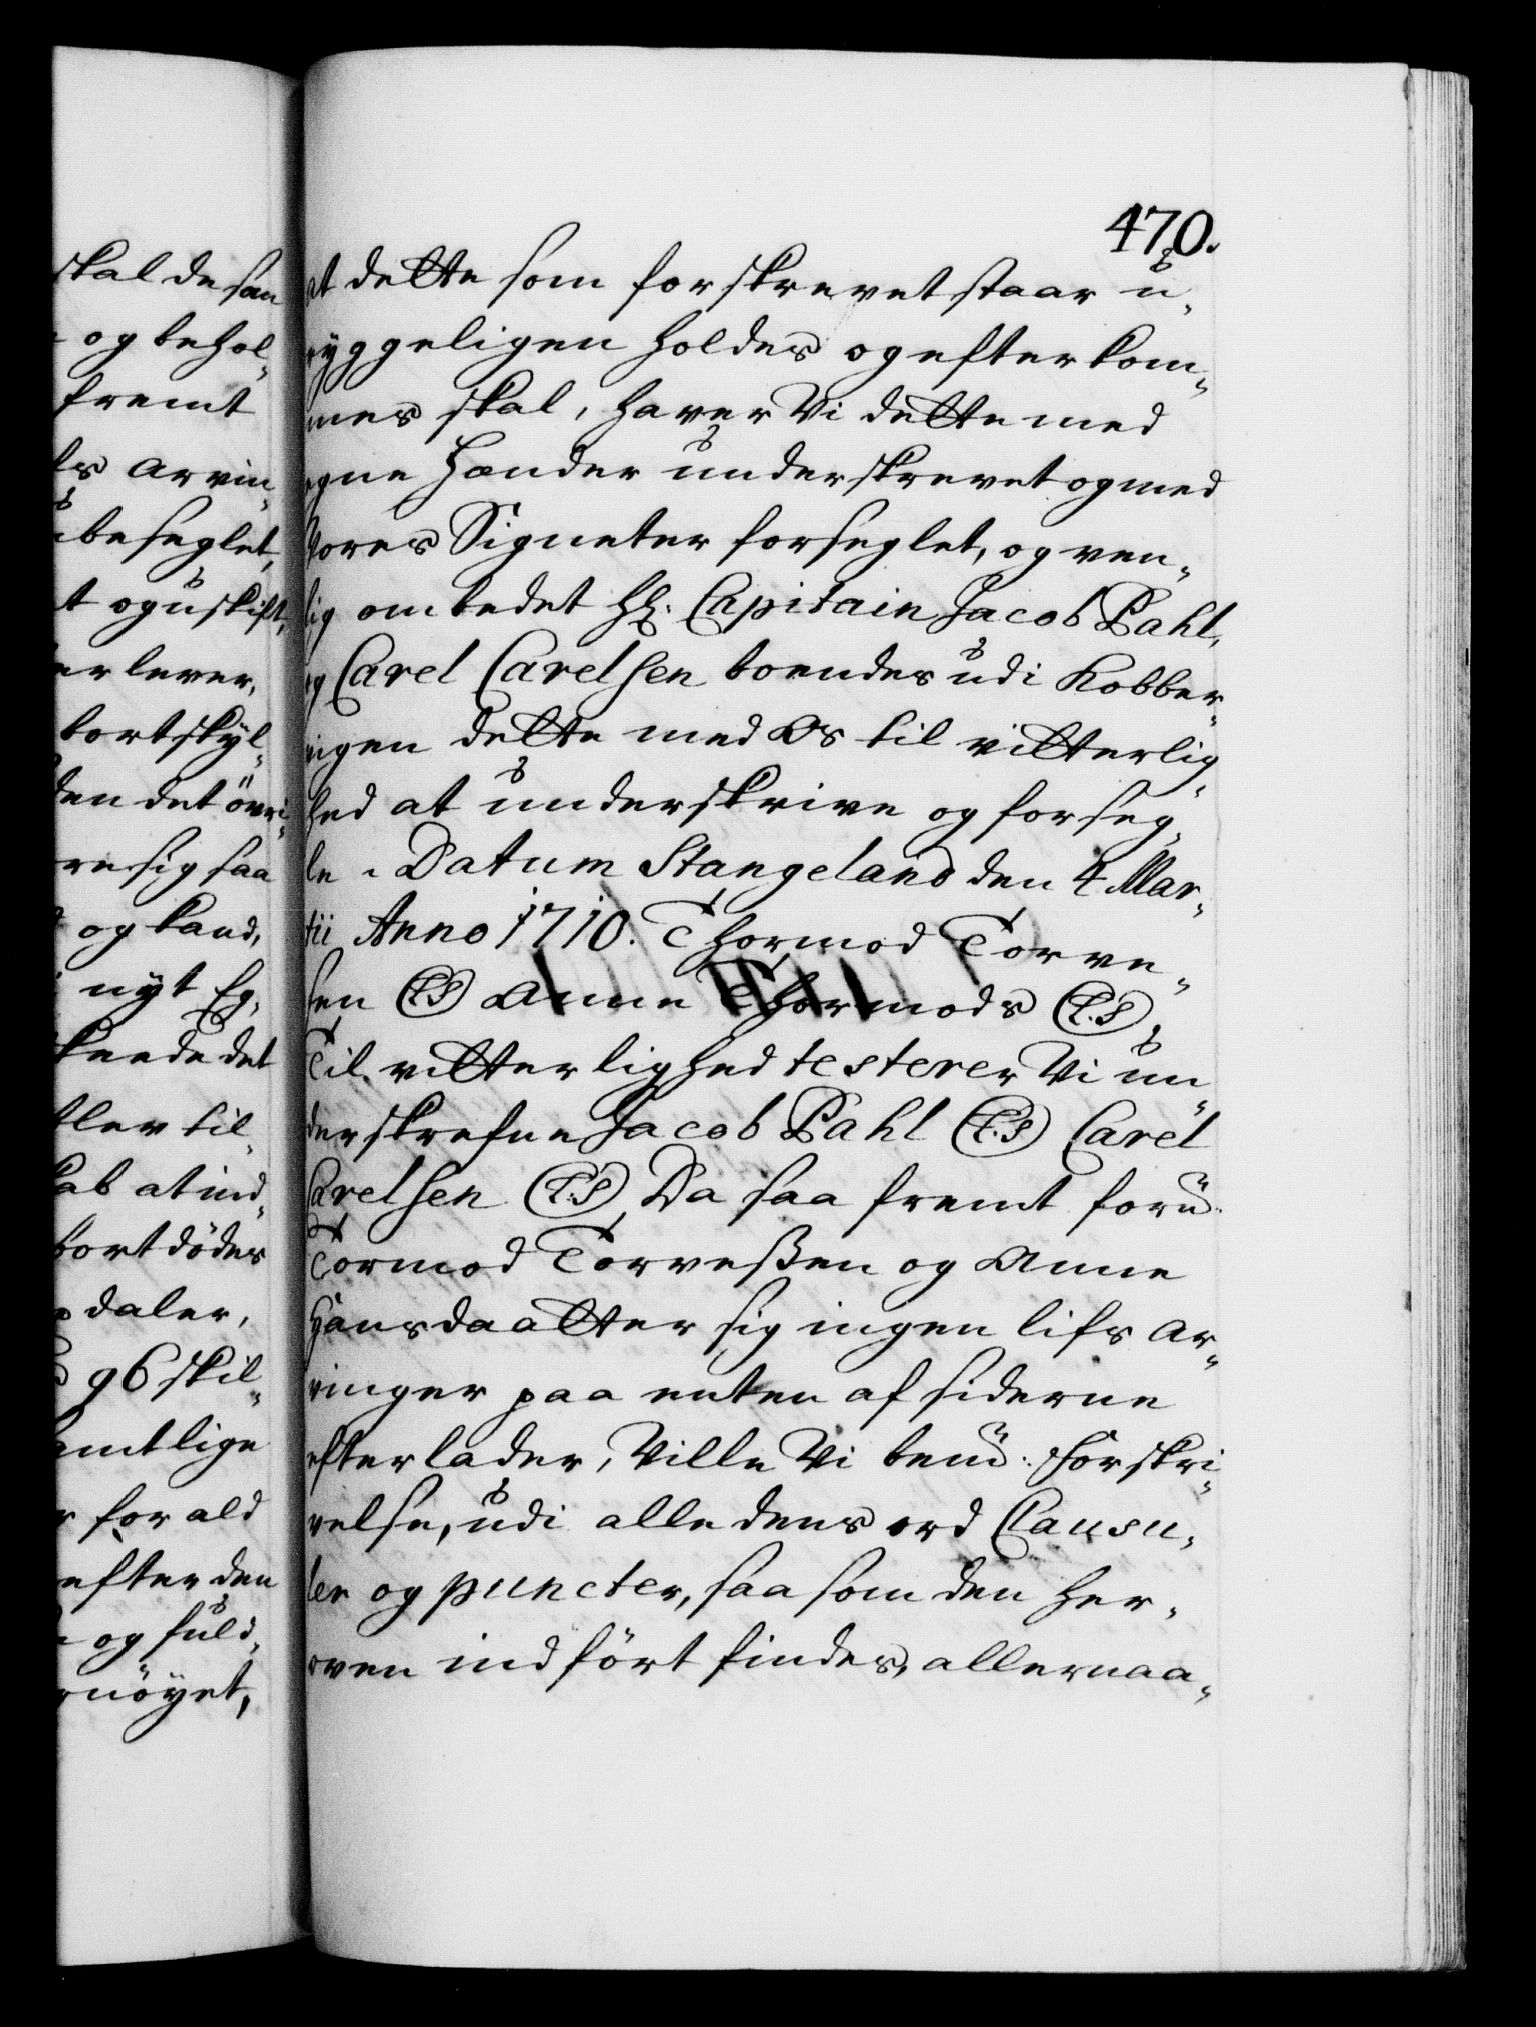 skal de saa
og behol-
fremt
ls arvin-
beseglet,
t og uskift,
er lever,
bortskyl-
den det övri-
re sig saa
og kand,
nyt Eg-
skeede det
eller til-
kab at ind-
bortdödes
daler,
96 skil-
amtlige
r for ald
efter den
og fuld-
rnöyet,
470.
at dette som forskrevet staar u-
ryggeligen holdes og efterkom-
mes skal, haver Vi dette med
egne Hænder underskrevet og med
Vores Signeter forseglet, og ven-
lig ombedet Hr. Capitain Jacob Pahl,
og Carel Carelsen boendes udi Kobber-
vigen dette med Os til vitterlig-
hed at underskrive og forseg-
le. Datum Stangeland den 4 Mar-
tii Anno 1710. Thormod Torve-
sen (L.S) Anne Thormods (L.S),
Til vitterlighed testerer Vi un-
derskrefne Jacob Pahl (L.S) Carel
Carelsen (L.S) Da saafremt foru:
Tormod Torveßen og Anne
Hansdaatter sig ingen lifs Ar-
vinger paa enten af siderne
efterlader, Ville Vi bem: Forskri-
velse, udi alle dens ord Clausu-
ler og puncter, saasom den her-
oven indfört findes, allernaa-